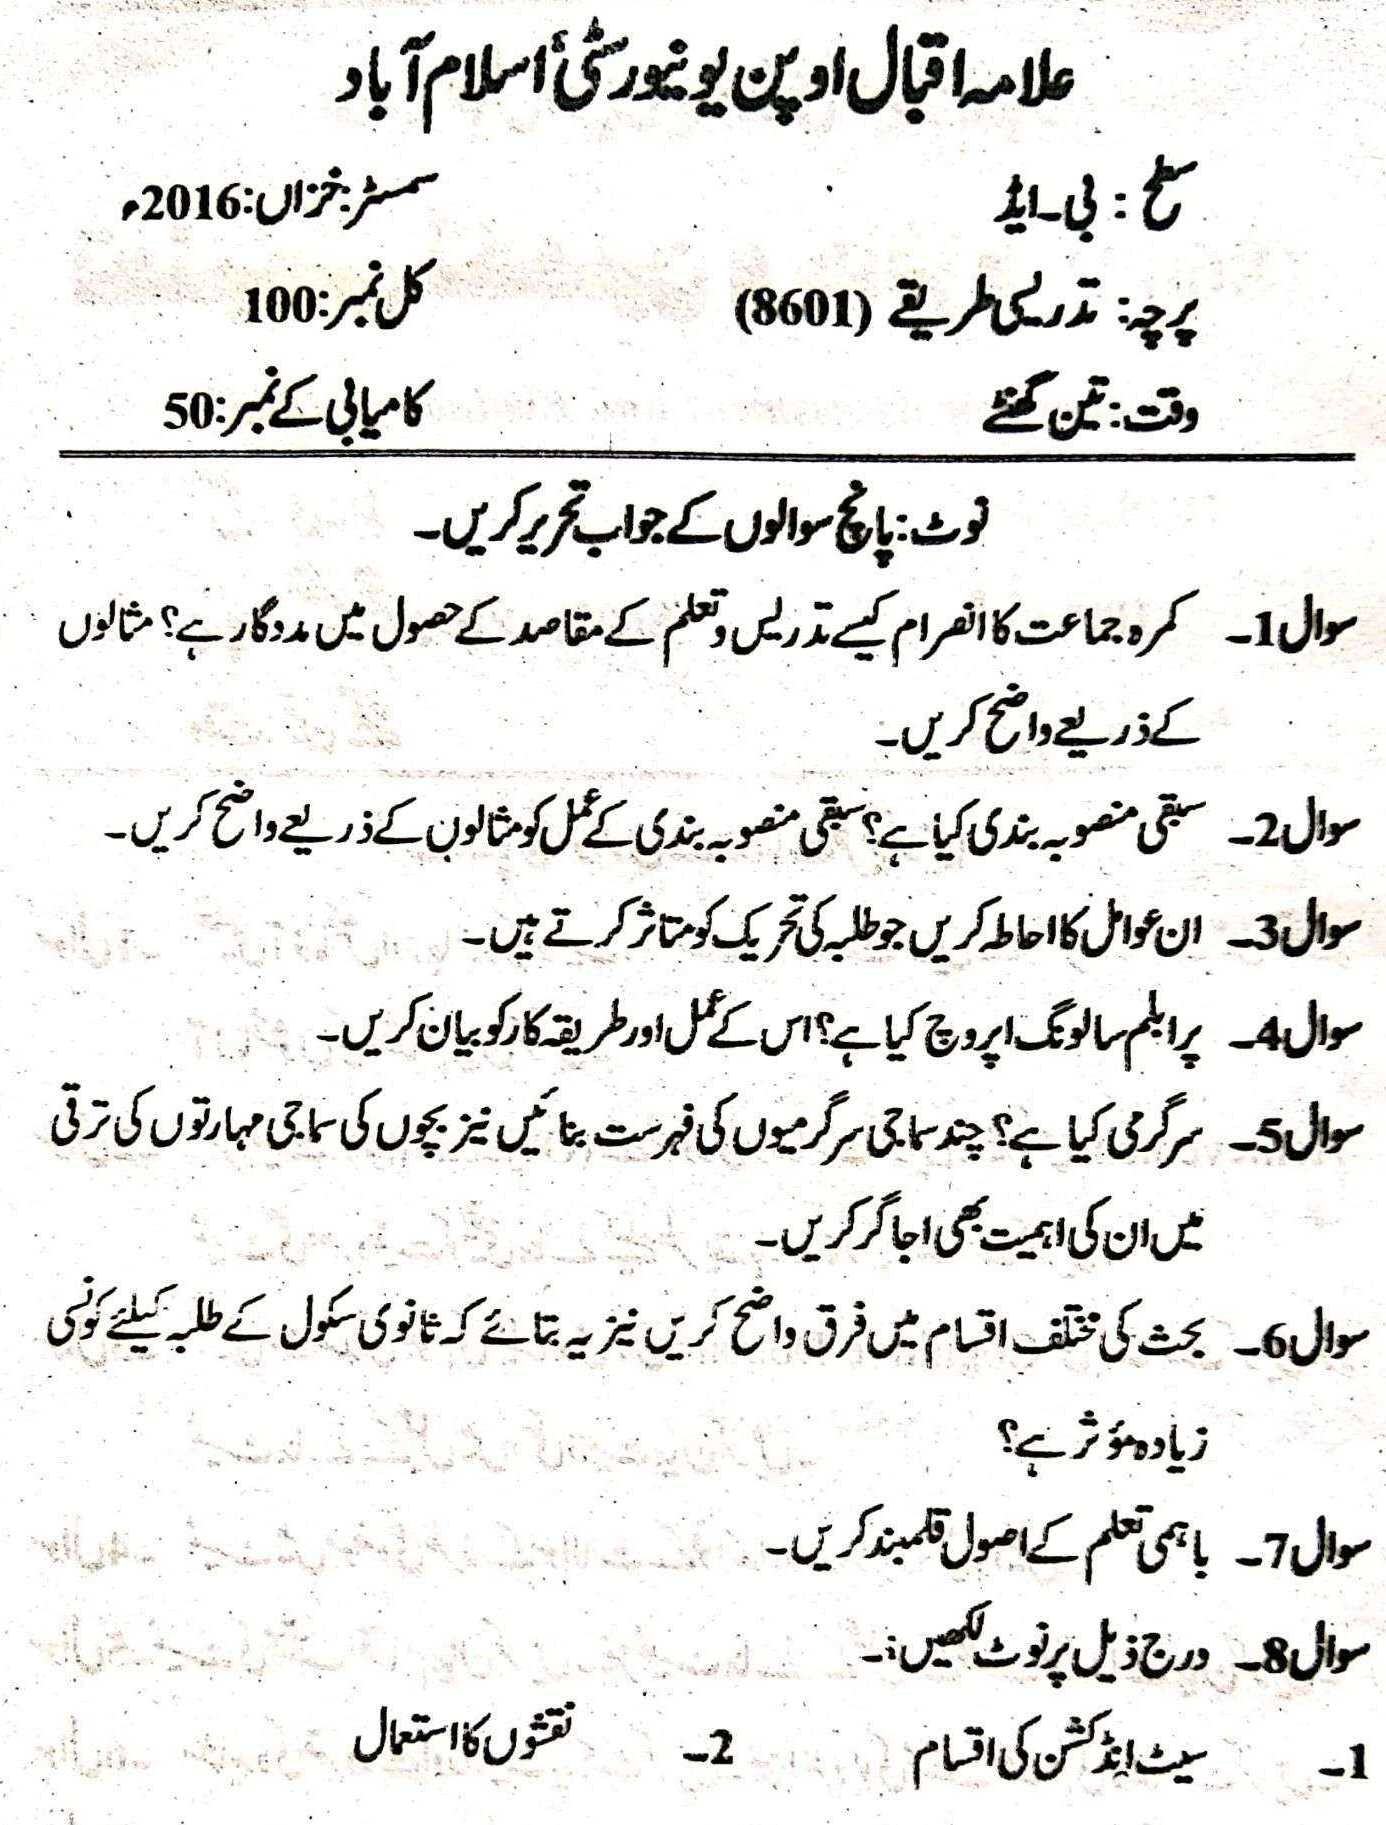 علامہ اقبال اوپن یونیورسٹی اسلام آباد
سطح : بی۔ایڈ سمسٹر:خزاں:2016ء
پرچہ: تدریسی طریقے (8601) کل نمبر:100
وقت: تین گھنٹے کامیابی کے نمبر:50
نوٹ: پانچ سوالوں کے جواب تحریر کریں۔
سوال 1۔ کمرہ جماعت کا انصرام کیسے تدریس و تعلم کے مقاصد کے حصول میں مددگار ہے؟ مثالوں
کے ذریعے واضح کریں۔
سوال 2۔ سبقی منصوبہ بندی کیا ہے؟ سبقی منصوبہ بندی کے عمل کو مثالوں کے ذریعے واضح کریں۔
سوال 3۔ ان عوامل کا احاطہ کریں جو طلبہ کی تحریک کو متاثر کرتے ہیں۔
سوال 4۔ پرابلم سالونگ اپروچ کیا ہے؟ اس کے عمل اور طریقہ کار کو بیان کریں۔
سوال 5۔ سرگرمی کیا ہے؟ چند سماجی سرگرمیوں کی فہرست بنائیں نیز بچوں کی سماجی مہارتوں کی ترقی
میں ان کی اہمیت بھی اجاگر کریں۔
سوال 6۔ بحث کی مختلف اقسام میں فرق واضح کریں نیز یہ بتائے کہ ثانوی سکول کے طلبہ کیلئے کونسی
زیادہ مؤثر ہے؟
سوال 7۔ باہمی تعلم کے اصول قلمبند کریں۔
سوال 8۔ درج ذیل پر نوٹ لکھیں:۔
1۔ سیٹ انڈکشن کی اقسام 2۔ نقشوں کا استعمال